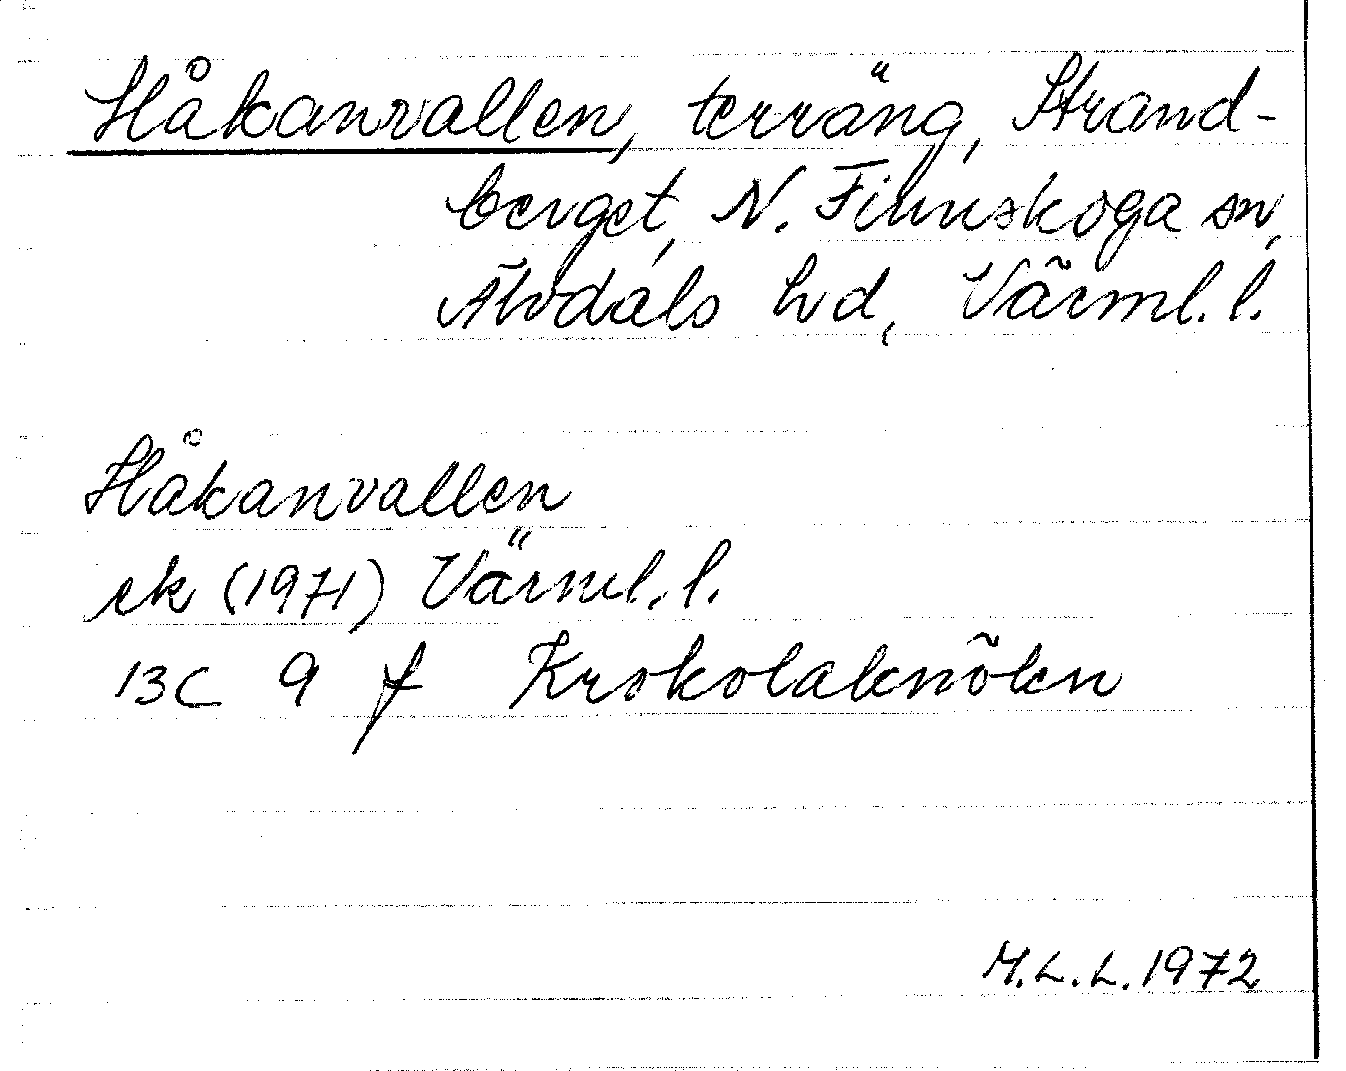 Håkanvallen, terräng, Strand-
berget, N. Finnskoga sn,
Älvdals hd, Värml. l.
Håkanvallen
ek (1971) Värml. l.
13C 9 f Krokolaknölen
M.L.L. 1972